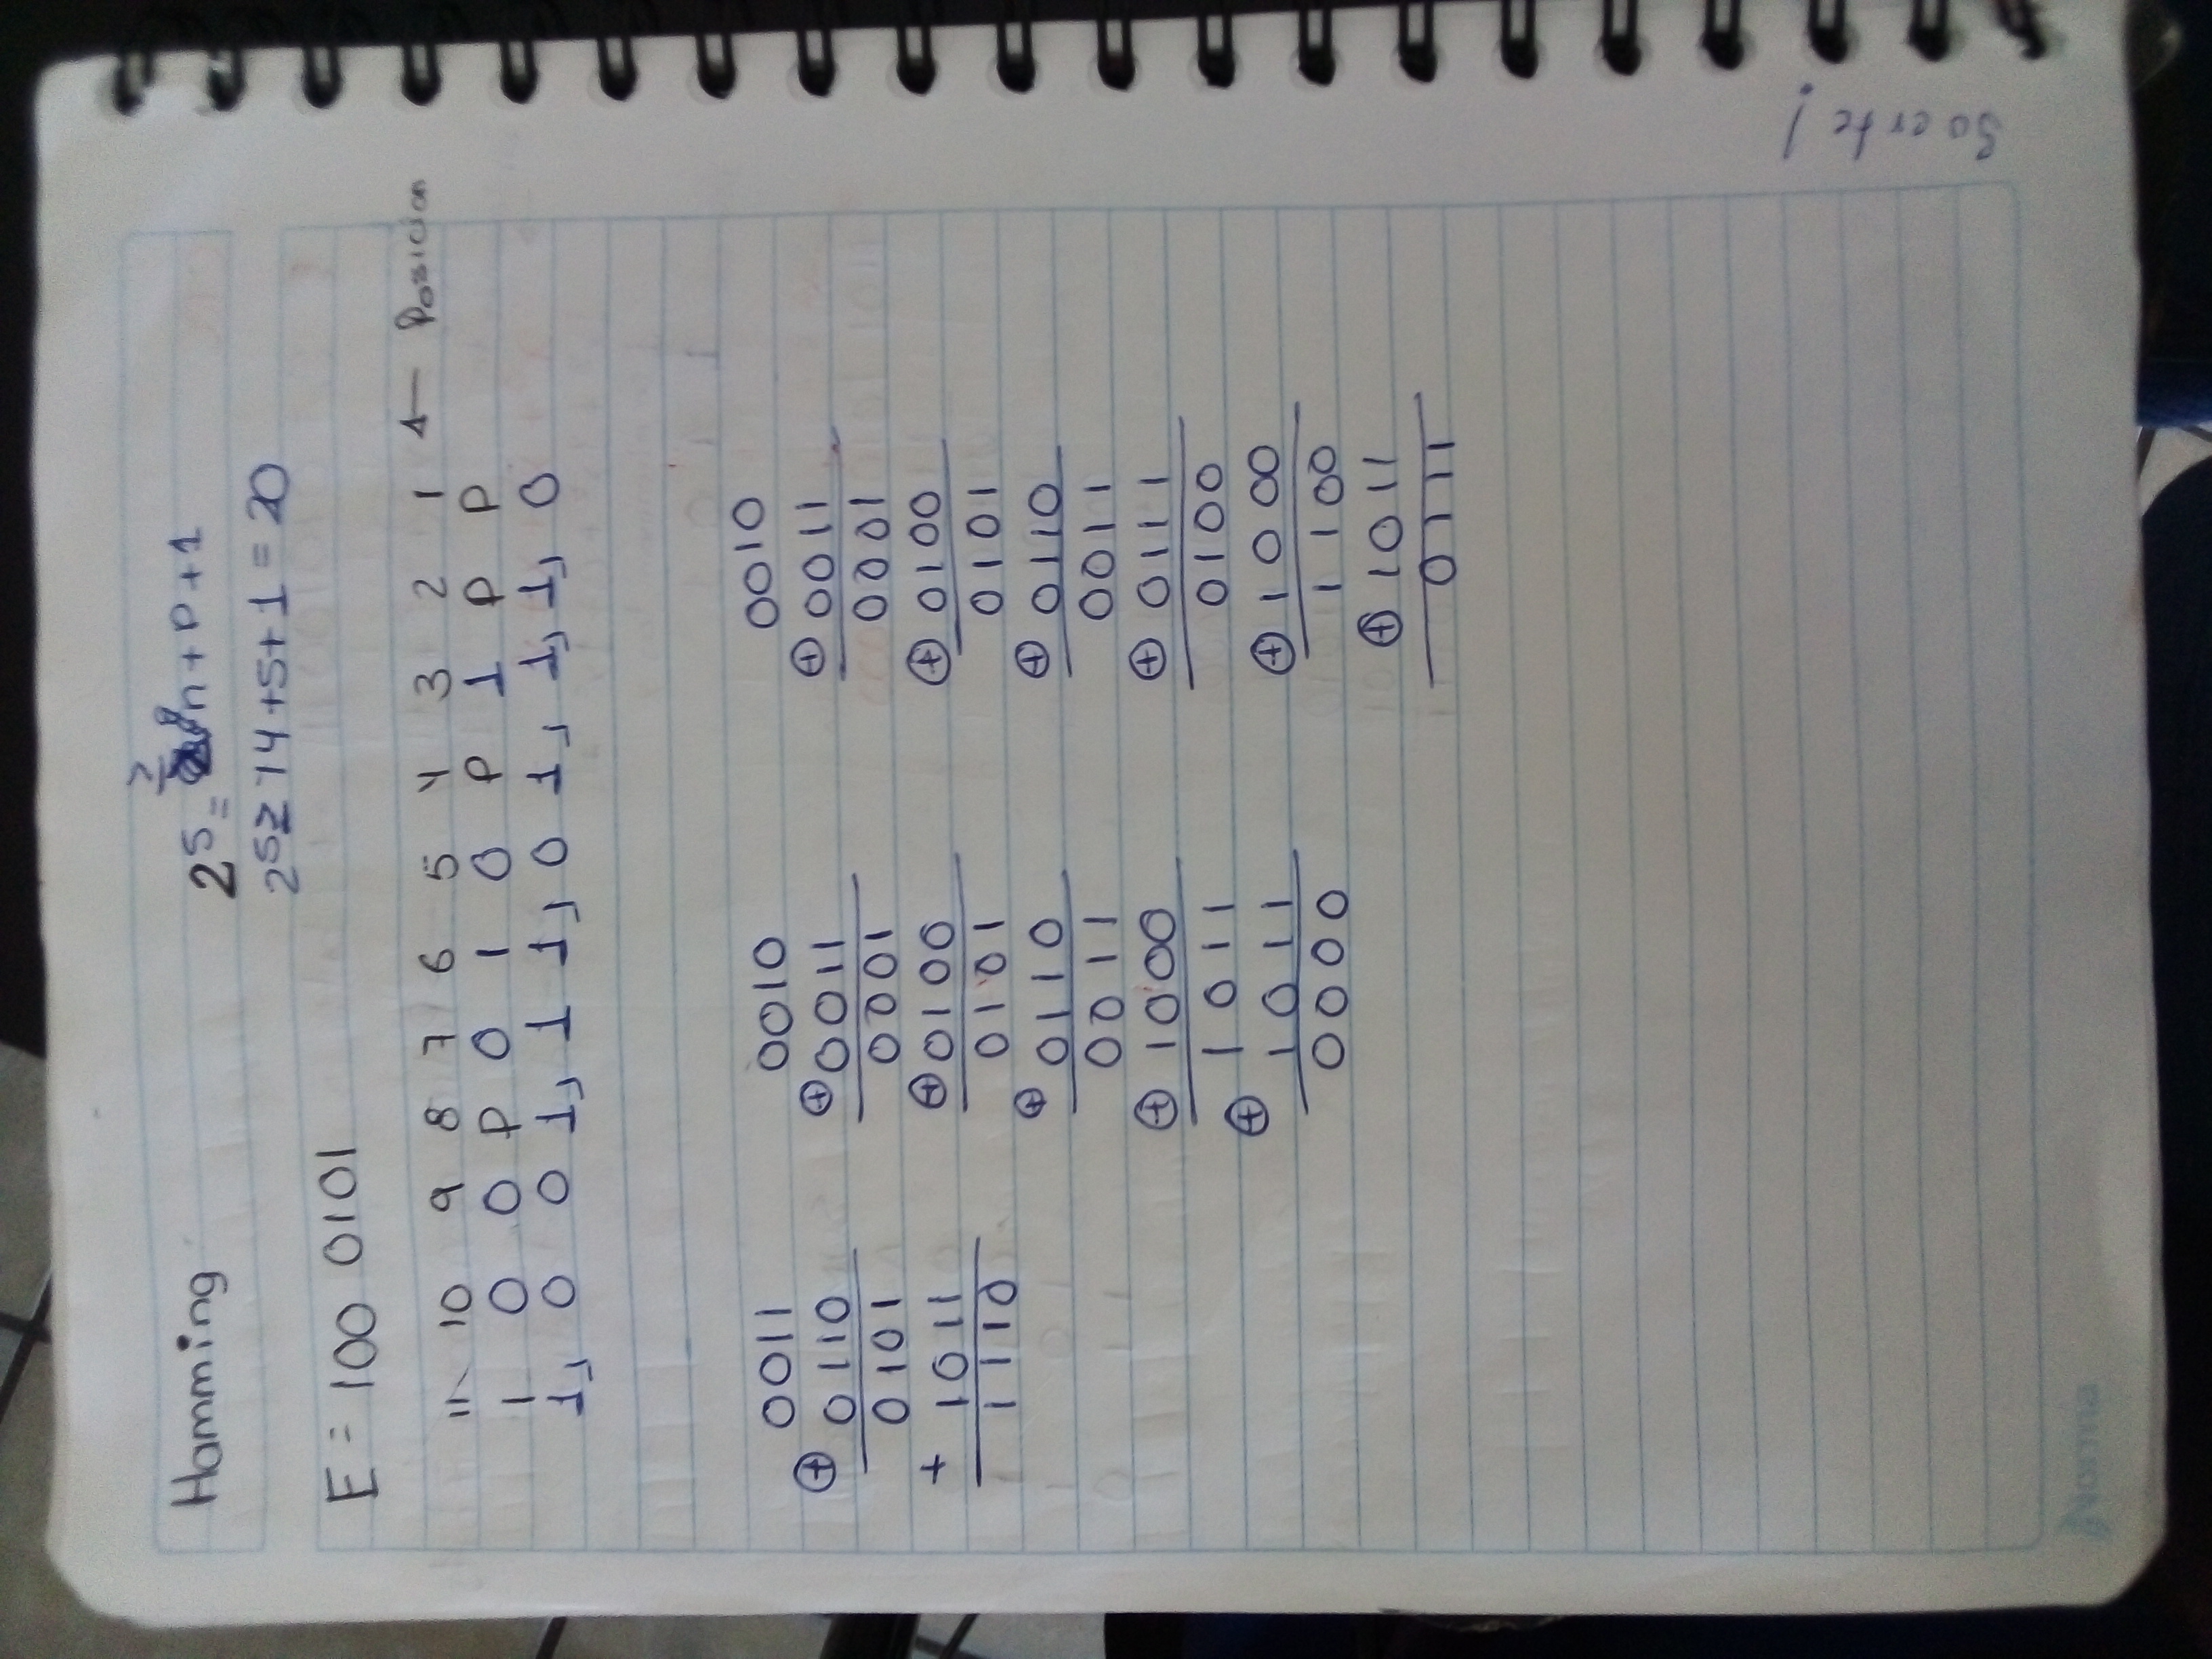 Hamming
2^5 ≥ n + p + 1
2^5 ≥ 14 + 5 + 1 = 20
E = 100 0101
11 10 9 8 7 6 5 4 3 2 1 ← Posicion
1 0 0 P 0 1 0 P 1 P P
1, 0 0 1, 1 1, 0 1, 1, 1, 0
0011
⊕ 0110
0101
+ 1011
1110
0010
⊕ 0011
0001
⊕ 0100
0101
⊕ 0110
0011
⊕ 1000
1011
⊕
1011
0000
0010
⊕ 0011
0001
⊕ 0100
0101
⊕ 0110
0011
⊕ 0111
0100
⊕ 1000
1100
⊕ 1011
0111
Suerte!
Norma